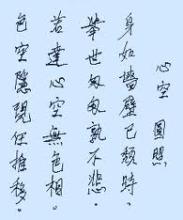 心空 圓照
身如牆壁已頹時
舉世匆匆孰不悲。
若達心空無色相。
色空隱現任推移。